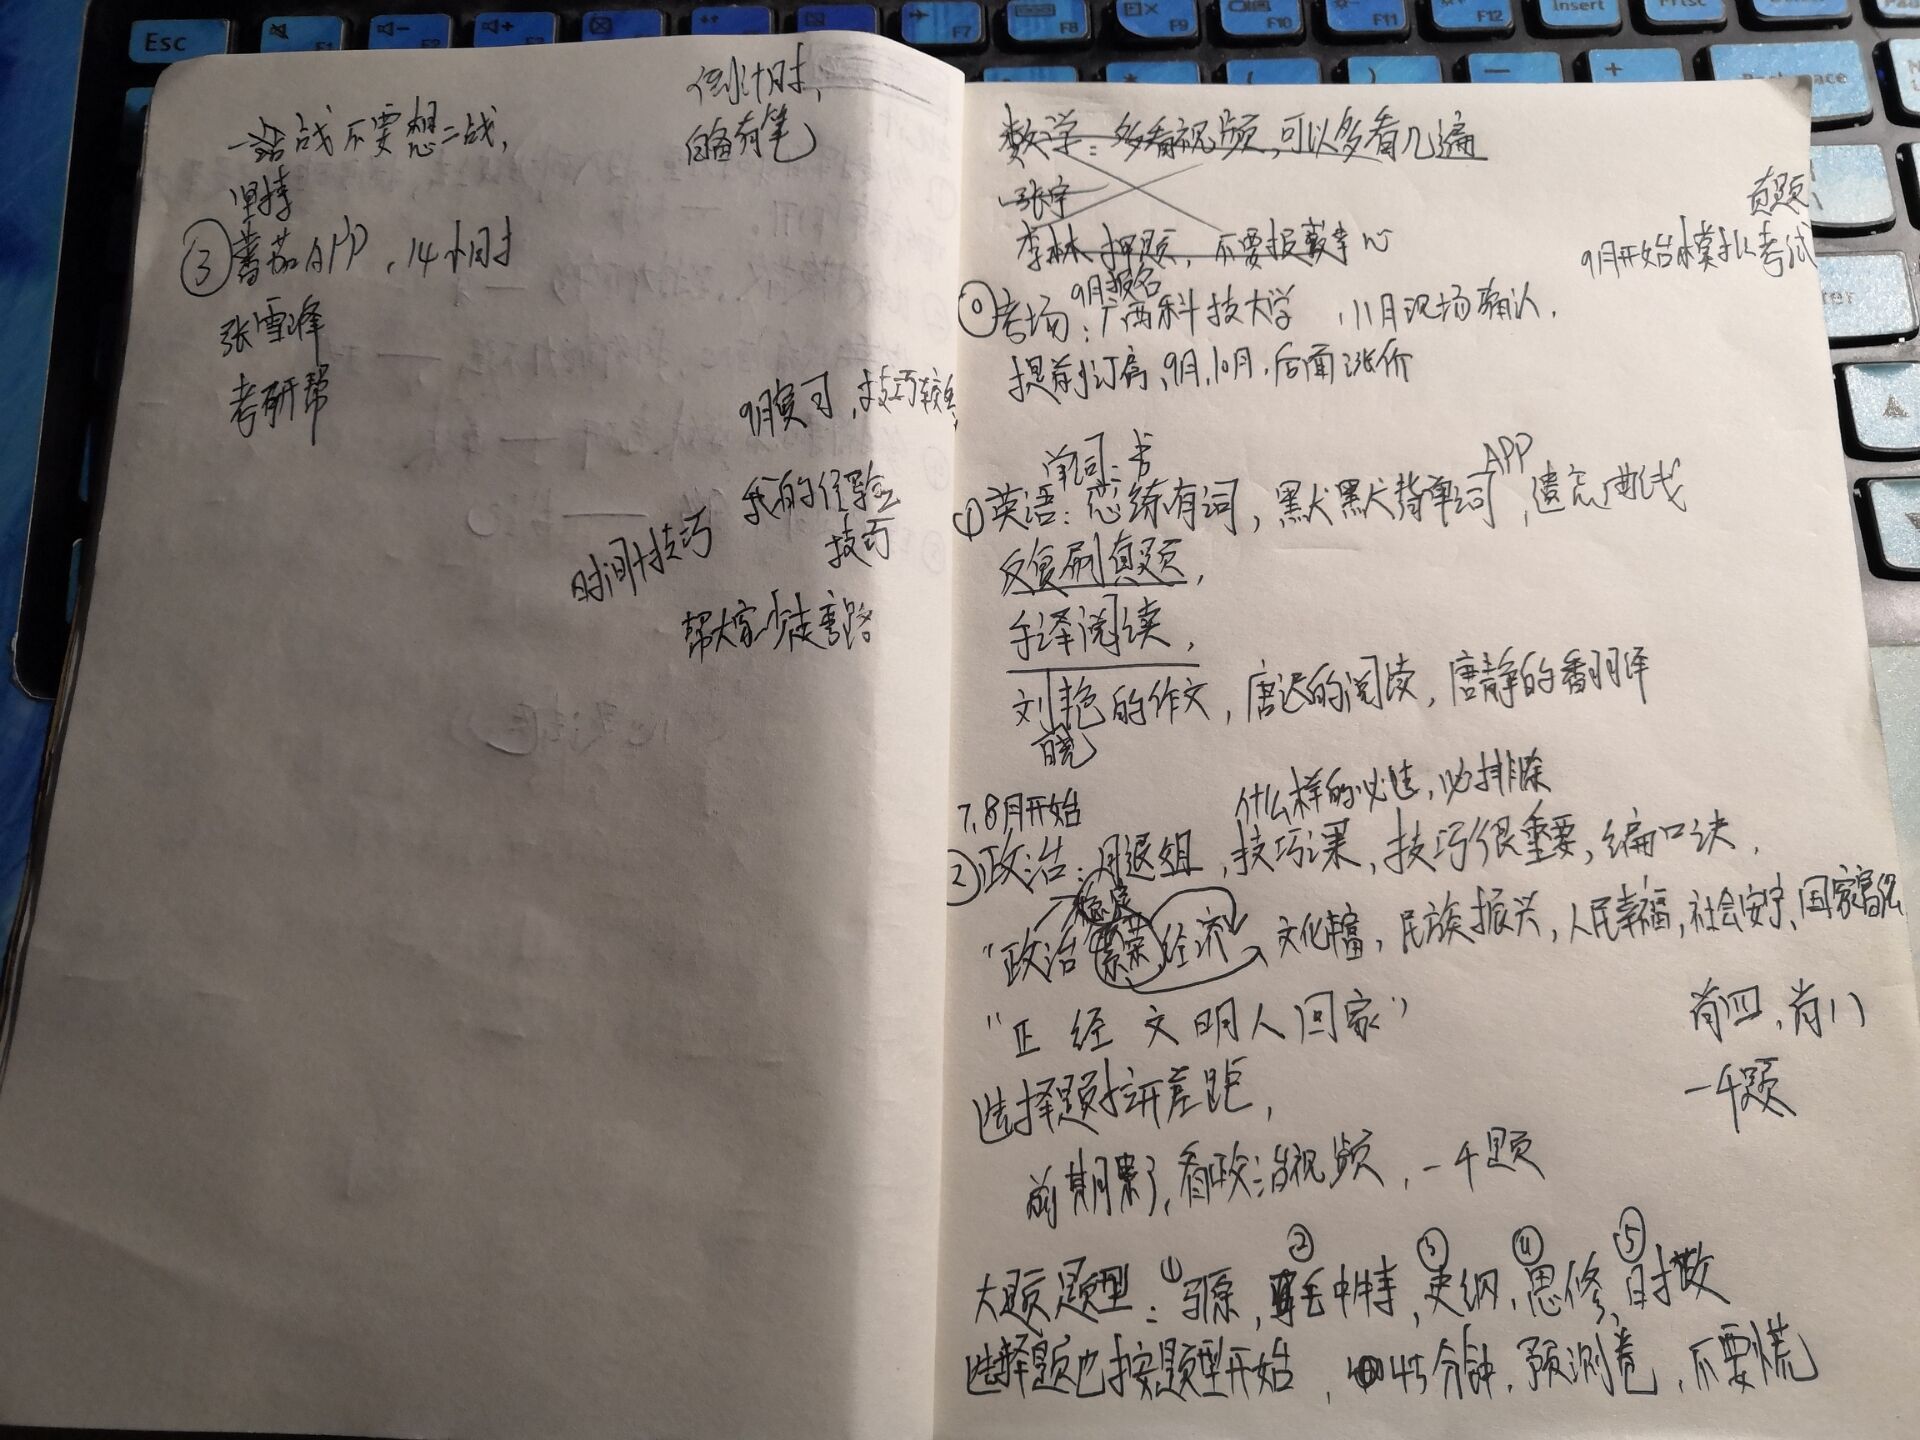 倒计时,
自备有笔
一战不要想二战,
坚持
③番茄APP,14小时
张雪峰
考研帮
9月复习,技巧较多
我的经验
技巧
时间+技巧
帮大家少走弯路
数学:多看视频,可以多看几遍
张宇
李林押题,不要报数学心
真题
9月开始模拟考试
9月报名
⓪考场:广西科技大学,11月现场确认.
提前订房,9月,10月.后面涨价
单词:书
APP
①英语:恋练有词,默默背单词,遗忘曲线
反复刷真题,
手译阅读,
刘艳的作文,唐迟的阅读,唐静的翻译
晓
7,8月开始
什么样的必选,必排除
②政治:腿姐,技巧课,技巧很重要,编口诀.
稳定
"政治 繁荣 经济 文化丰富,民族振兴,人民幸福,社会安宁,国家富强
"正经文明人回家"
肖四,肖八
一千题
选择题拉开差距,
前期累了,看政治视频,一千题
大题题型:①马原,②毛中特,③史纲,④思修,⑤时政
选择题也按题型开始,45分钟,预测卷,不要慌
Esc
F1
F2
F3
F7
F8
F9
F10
F11
F12
Insert
PrtSc
Backspace